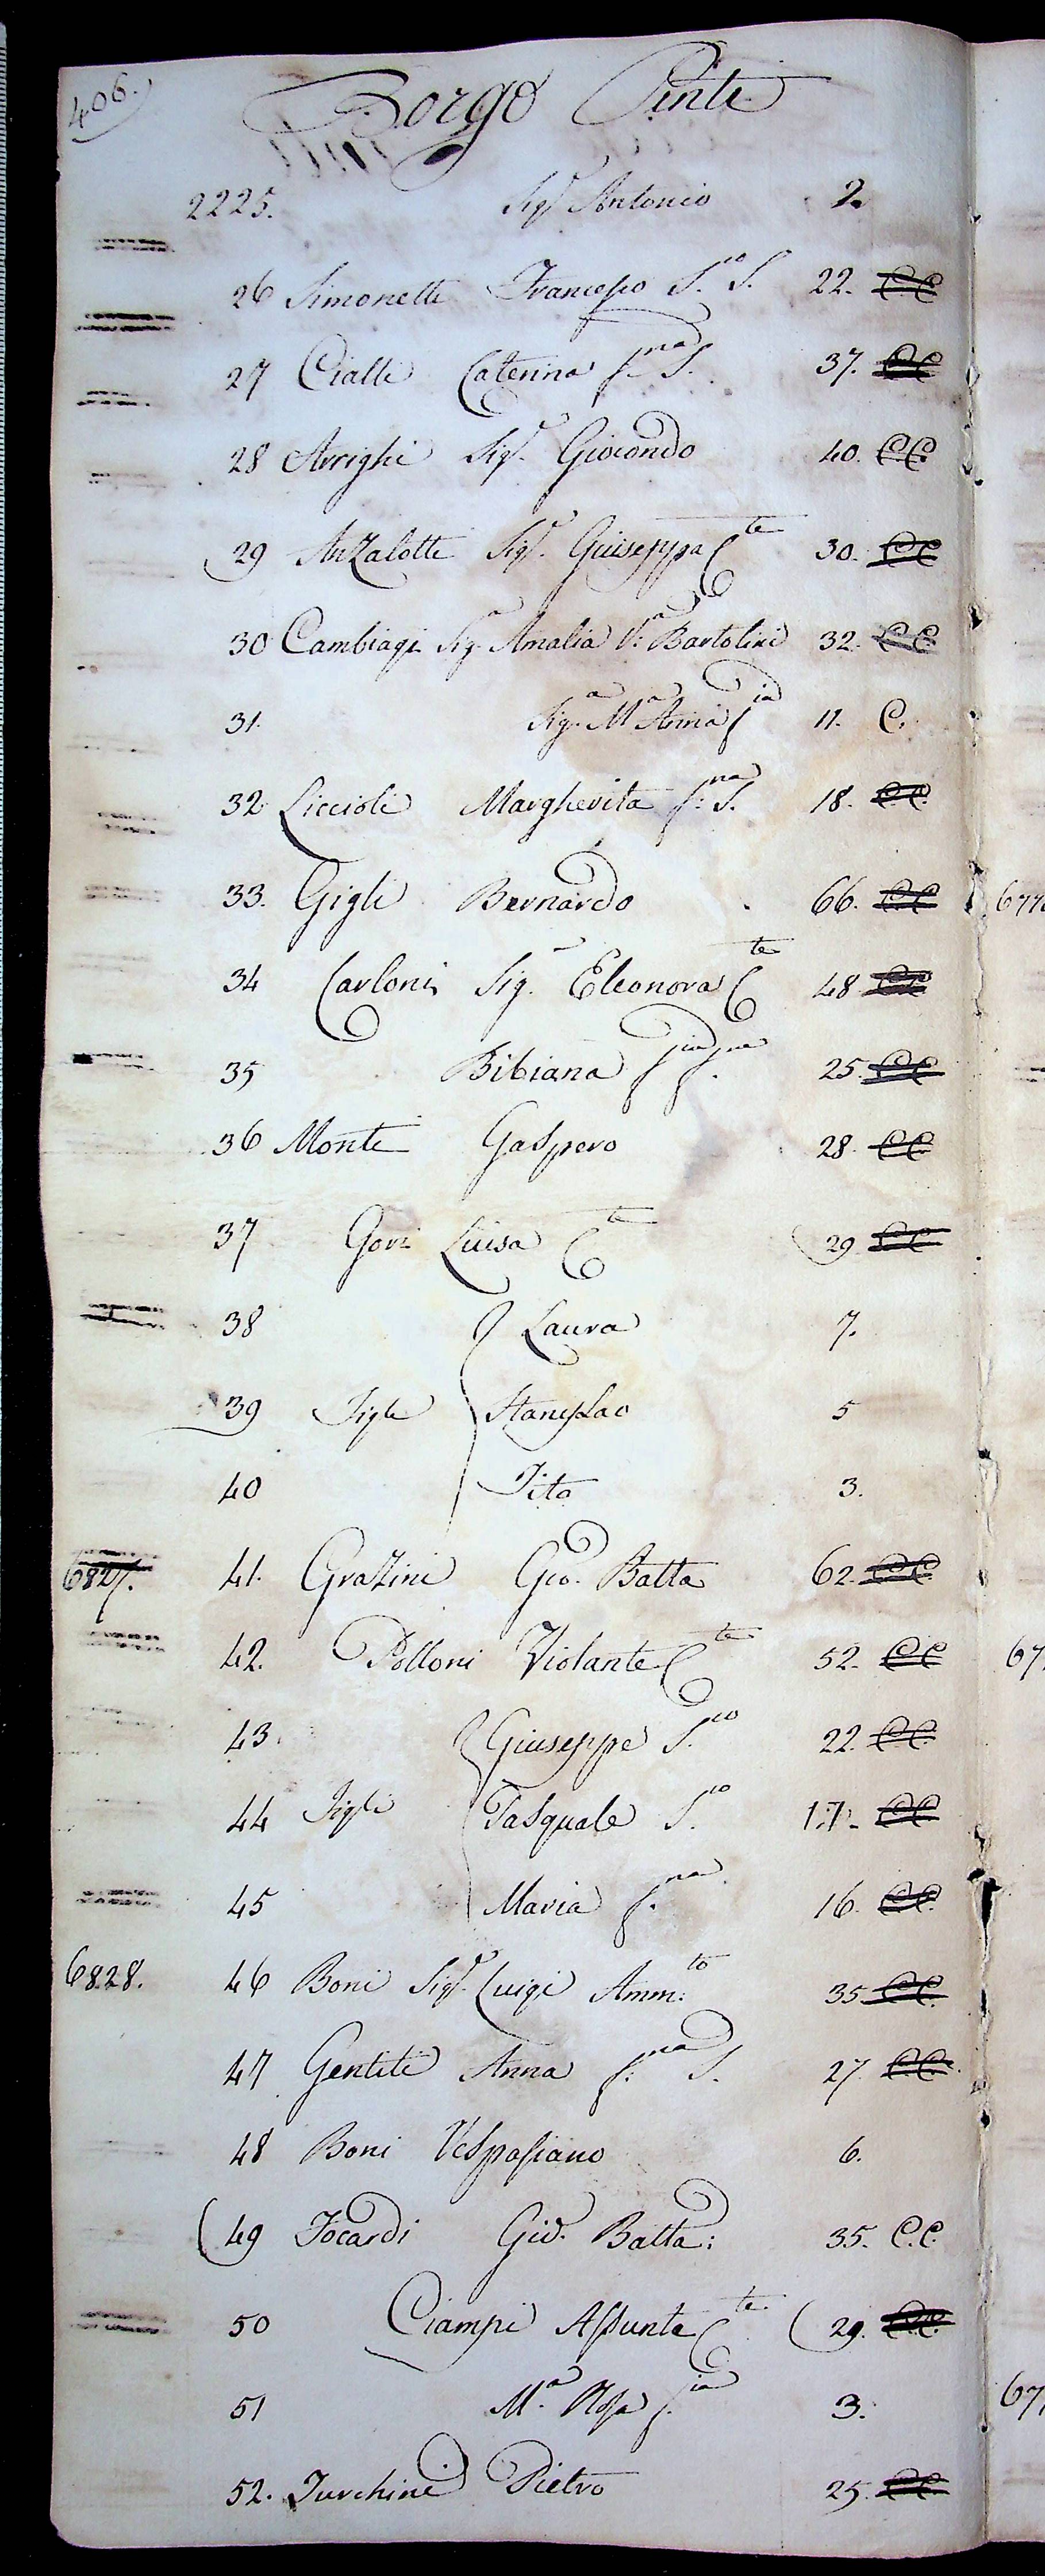 406.
Borgo Pinti
2225. Sig.r Antonio 2.
26 Simonetti Francesco S.o S. 22. C.C
27 Cialli Caterina f.na S. 37. C.C
28 Arrighi Sig.r Giocondo 40. C.C.
29 Anzalotti Sig.r Giuseppa C.te 30. C.C
30 Cambiagi Sig.a Amalia V.a Bartolini 32. C.C.
31. Sig.a M.a Anna f.ia 11. C.
32 Liccioli Margherita f.na S. 18. C.C.
33. Gigli Bernardo 66. C.C
34 Carloni Sig.a Eleonora C.te 48 C.C
35 Bibiana f.ia f.na 25. C.C
36 Monti Gaspero 28. C.C.
37 Gori Luisa C.te 29 C.C
38 Laura 7.
39 Figli Stanislao 5
40 Tito 3.
6827. 41. Grazini Gio. Batta 62. C.C
42. Polloni Violante C.te 52. C.C
43. Giuseppe S.io 22. C.C.
44 Figli Pasquale S.io 17. C.C
45 Maria f.na 16. C.C.
6828. 46 Boni Sig.r Luigi Amm.to 35 C.C.
47 Gentili Anna f.na S. 27. C.C.
48 Boni Vespasiano 6.
49 Focardi Gio. Batta: 35. C.C.
50 Ciampi Assunta C.te 29. C.C.
51 M.a Rosa f.ia 3.
52. Turchini Pietro 25. C.C.